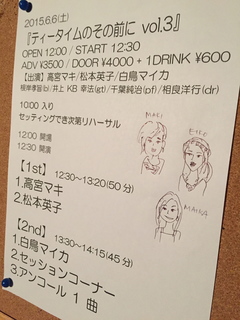 2015.6.6(土)
『ティータイムのその前に vol.3』
OPEN 12:00 / START 12:30
ADV ¥3500 / DOOR ¥4000 + 1DRINK ¥600
【出演】高宮マキ/松本英子/白鳥マイカ
根岸孝旨(b)/井上 KB 幸法(gt)/千葉純治(pf)/相良洋行(dr)
10:00 入り
セッティングでき次第リハーサル
12:00 開場
12:30 開演
【1st】 12:30~13:20(50分)
1.高宮マキ
2.松本英子
【2nd】 13:30~14:15(45分)
1.白鳥マイカ
2.セッションコーナー
3.アンコール 1 曲
MAKI
EIKO
MAIKA